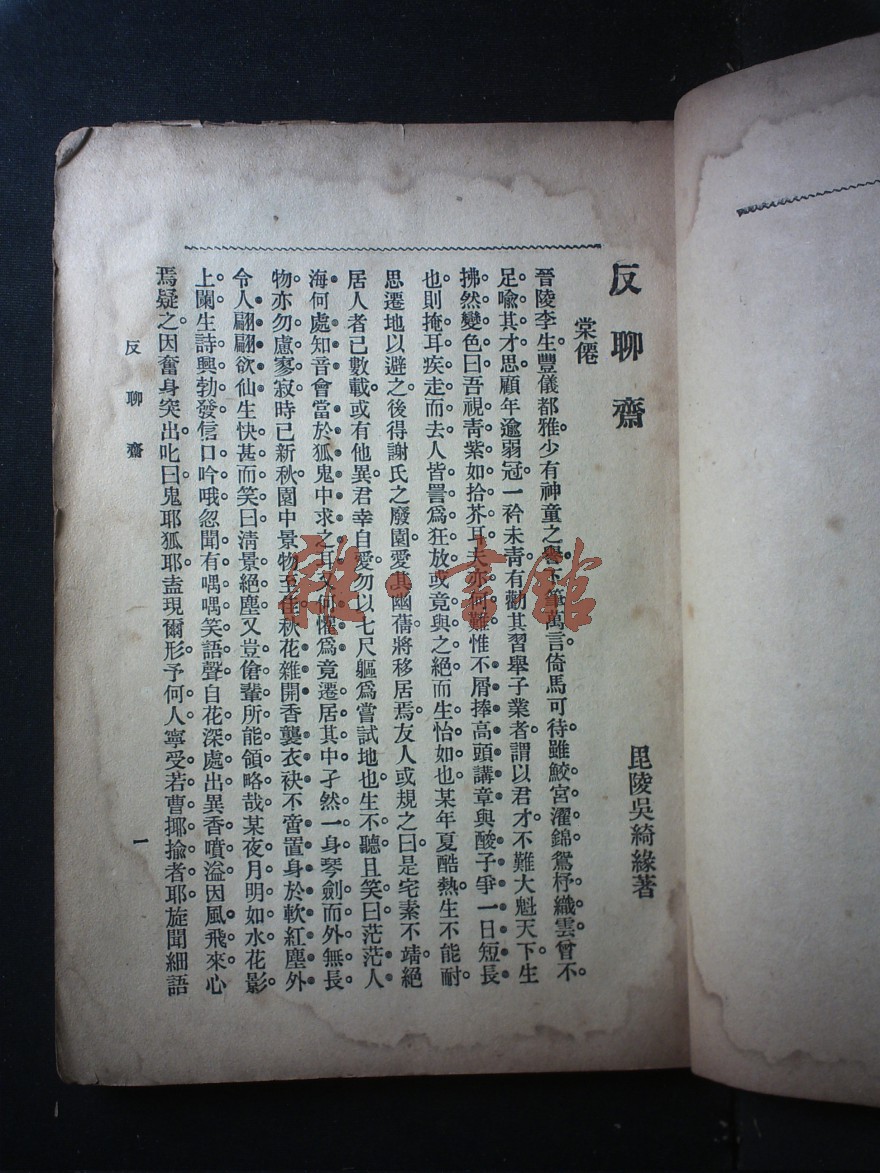 反聊齋
毘陵吳綺緣著
棠僊
晉陵李生豐儀都雅。少有神童之譽。下筆萬言。倚馬可待。雖鮫宮濯錦。鴛杼織雲。曾不
足喩其才思。顧年逾弱冠。一衿未靑。有勸其習舉子業者。謂以君才。不難大魁天下。生
拂然變色曰。吾視靑紫如拾芥耳。夫亦何難。惟不屑捧高頭講章與酸子爭一日短長
也。則掩耳疾走而去。人皆詈爲狂放。或竟與之絕。而生怡如也。某年夏酷熱。生不能耐。
思遷地以避之。後得謝氏之廢園。愛其幽蒨。將移居焉。友人或規之曰。是宅素不靖。絕
居人者已數載。或有他異。君幸自愛。勿以七尺軀爲嘗試地也。生不聽。且笑曰。茫茫人
海。何處知音。會當於狐鬼中求之耳。又何懼爲。竟遷居其中。孑然一身。琴劍而外無長
物。亦勿慮寥寂。時已新秋。園中景物至佳。秋花雜開。香襲衣袂。不啻置身於軟紅塵外。
令人翩翩欲仙。生快甚而笑曰。淸景絕塵。又豈傖輩所能領略哉。某夜月明如水。花影
上闌。生詩興勃發。信口吟哦。忽聞有喁喁笑語聲。自花深處出。異香噴溢。因風飛來。心
焉疑之。因奮身突出。叱曰。鬼耶狐耶。盍現爾形。予何人。寧受若曹揶揄者耶。旋聞細語
反聊齋
一
雜·書館